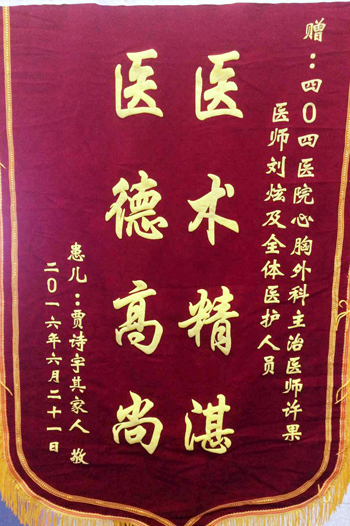 赠：四0四医院心胸外科主治医师许果
医师刘炫及全体医护人员
医术精湛
医德高尚
患儿：贾诗宇其家人 敬
二0一六年六月二十一日